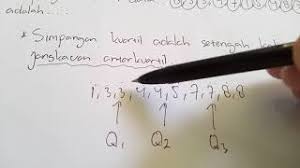 adalah....
* Simpangan kuartil adalah setengah
jangkauan antarkuartil
1, 3, 3, 4, 4, 4, 5, 7, 7, 8, 8
Q1 Q2 Q3